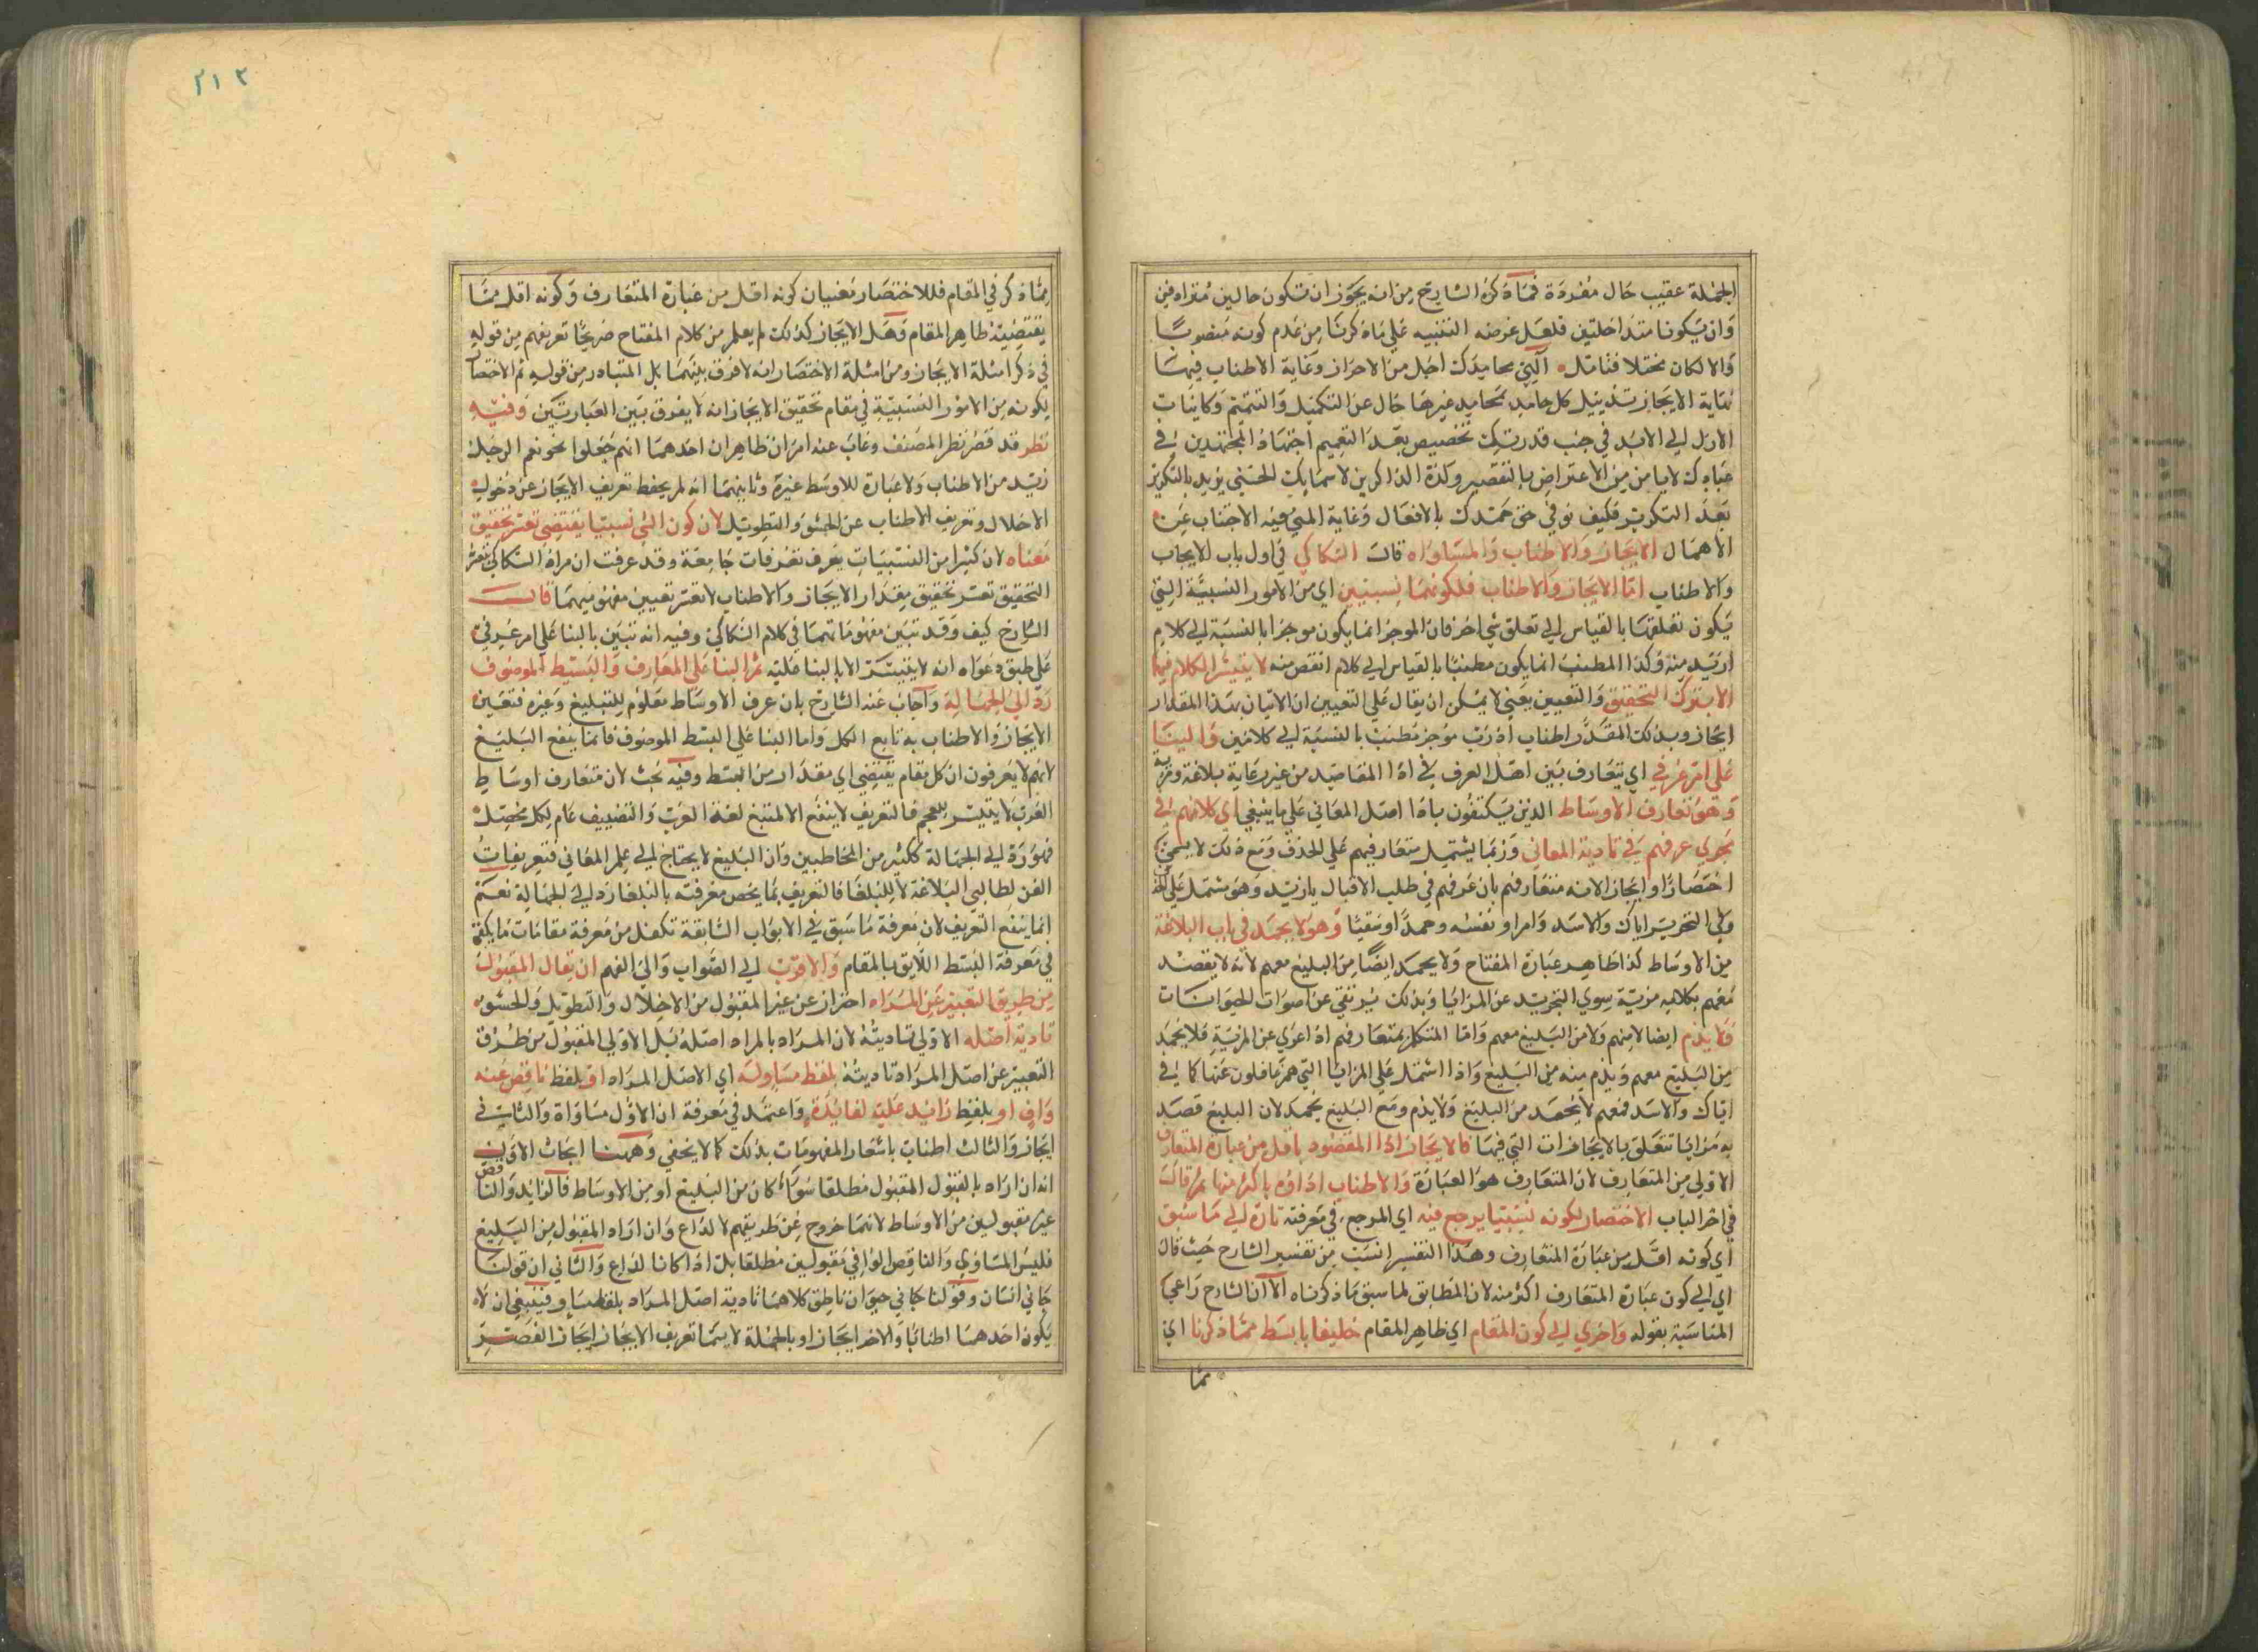 الجملة عقيب حال مفردة فما ذكره الشارح من انه يجوز ان تكون حالين مترادفين
وان يكونا متداخلتين فلعل غرضه التنبيه على ما ذكرنا من عدم كونه منصوبا
والا لكان مختلا فتامل اللهم محامدك اجل من الاحراز وغاية الاطناب فيها
نهاية الايجاز تذييل كل حامد بمحامد غيرها خال عن التكميل والتتميم وكاينات
الازل الى الابد في جنب قدرتك تخصيص بعد التعميم اجتهاد المجتهدين في
عبادتك لا يامن من الاعتراض بالتقصير وكثرة الذاكرين لاسمايك الحسنى يزيد بالتكرير
بعد التكرير فكيف نوفي حق حمدك بالافعال وغاية المنى فيه الاجتناب عن
الاهمال الايجاز والاطناب والمساواه قال السكاكي في اول باب الايجاز
والاطناب اما الايجاز والاطناب فلكونهما نسبيين اي من الامور النسبية التي
يكون تعلقها بالقياس الى تعلق شي اخر فان الموجز انما يكون موجزا بالنسبة الى كلام
ازيد منه وكذا المطنب انما يكون مطنبا بالقياس الى كلام انقص منه لا يتيسر الكلام فيهما
الا بترك التحقيق والتعيين يعني لا يمكن ان يقال على التعيين ان الاتيان بهذا المقدار
ايجاز وبذلك المقدار اطناب اذ رب موجز مطنب بالنسبة الى كلامين والبنا
على امر عرفي اي يتعارف بين اهل العرف في اداا المقاصد من غير رعاية بلاغة ومزية
وهو متعارف الاوساط الذين يكتفون باداا اصل المعاني على ما ينبغي اي كلامهم في
مجرى عرفهم في تادية المعاني وربما يشتمل متعارفهم على الحذف ومع ذلك لا يسمى
اختصارا وايجازا لانه متعارفهم بان عرفهم في طلب الاقبال يازيد وهو مشتمل على
وفي التحرير اياك والاسد وامراو نفسه وحمدا وسقيا وهو لا يحمد في باب البلاغة
من الاوساط كذا ظاهر عبارة المفتاح ولا يحمد ايضا من البليغ معهم لانه لا يقصد
معهم بكلامه مزية سوى التجريد عن المزايا وبذلك يرتقي عن اصوات الحيوانات
ولا يذم ايضا لا منهم ولا من البليغ معهم واما المتكلم بمتعارفهم اذا عري عن المزية فلا يحمد
من البليغ معهم ويذم منه من البليغ واذا اشتمل على المزايا التي هم غافلون عنها كما في
اياك والاسد فمعهم لا يحمد من البليغ ولا يذم ومع البليغ يحمد لان البليغ قصد
به مزايا تتعلق بالايجازات التي فيها فالايجاز اداا المقصود باقل من عبارة المتعارف
الاولى من المتعارف لان المتعارف هو العبارة والاطناب اداوه باكثر منها ثم قال
في اخر الباب الاختصار لكونه نسبيا يرجع فيه اي المرجع في معرفته تارة الى ما سبق
اي كونه اقل من عبارة المتعارف وهذا التفسير انسب من تفسير الشارح حيث قال
اي الى كون عبارة المتعارف اكثر منه لان المطابق لما سبق ما ذكرناه الا ان الشارح راعى
المناسبة بقوله واخرى الى كون المقام اي ظاهر المقام خليقا بابسط مما ذكرنا اي
مما
٢١٢
مما ذكر في المقام فللاختصار معنيان كونه اقل من عبارة المتعارف وكونه اقل مما
يقتضيه ظاهر المقام وهل الايجاز كذلك لم يعلم من كلام المفتاح صريحا تعريفهم من قوله
في ذكر امثلة الايجاز ومن امثلة الاختصار انه لا فرق بينهما بل المتبادر من قوله ثم الاختصار
لكونه من الامور النسبية في مقام تحقيق الايجاز انه لا يفرق بين العبارتين وفيه
نظر قد قصر نظر المصنف وغاب عنه امران ظاهران احدهما انهم جعلوا نحو نعم الرجل
زيد من الاطناب ولا عبارة للاوسط غيره وثانيهما انه لم يحفظ تعريف الايجاز عن دخول
الاخلال وتعريف الاطناب عن الحشو والتطويل لان كون الشي نسبيا يقتضي تعسر تحقيق
معناه لان كثيرا من النسبيات يعرف تعريفات جامعة وقد عرفت ان مراد السكاكي بتعسر
التحقيق تعسر تحقيق مقدار الايجاز والاطناب لا تعسر تعيين مفهوميهما قال
الشارح كيف وقد تبين مفهوماتهما في كلام السكاكي وفيه انه تبين بالبنا على امر عرفي
على طبق دعواه انه لا يتيسر الا بالبنا عليه ثم البنا على المعارف والبسيط الموصوف
رد الى الجهالة واجاب عنه الشارح بان عرف الاوساط معلوم للبليغ وغيره فتعين
الايجاز والاطناب به نابع الكل واما البنا على البسط الموصوف فانما ينفع البليغ
لانهم لا يعرفون ان كل مقام يقتضي اي مقدار من البسط وفيه بحث لان متعارف اوساط
العرب لا يتيسر للعجم فالتعريف لا ينفع الا المتتبع لغة العرب والتصنيف عام لكل محصل
فهو رد الى الجهالة لكثير من المخاطبين وان البليغ لا يحتاج الى علم المعاني فتعريفات
الفن لطالبي البلاغة لا للبلغا فالتعريف بما يخص معرفته بالبلغا رد الى الجهالة نعم
انما ينفع التعريف لان معرفة ما سبق في الابواب السابقة تكفل من معرفة مقامات ما يكفي
في معرفة البسط اللايق بالمقام والاقرب الى الصواب والى الفهم ان يقال المقبول
من طريق التعبير عن المراد احتراز عن غير المقبول من الاخلال والتطويل والحشو
تادية اصله الاولى تاديته لان المراد بالمراد اصله بل الاولى المقبول من طرق
التعبير عن اصل المراد تاديته بلفظ مساو له اي الاصل المراد او بلفظ ناقص عنه
واف او بلفظ زايد عليه لفايدة واعتمد في معرفة ان الاول مساواة والثاني
ايجاز والثالث اطناب باشعار المفهومات بذلك كما لا يخفى وههنا ابحاث الاول
انه ان اراد بالقبول المقبول مطلقا سواء كان من البليغ او من الاوساط فالزايد والناقص
غير مقبولين من الاوساط لانهما خروج عن طريقهم لا لداع وان اراد المقبول من البليغ
فليس المساوي والناقص الوافي مقبولين مطلقا بل اذا كانا لداع والثاني ان قولنا
جاني انسان وقولنا جاني حيوان ناطق كلاهما تادية اصل المراد بلفظ مساو فينبغي ان لا
يكون احدهما اطنابا والاخر ايجازا وبالجملة لا يسما تعريف الايجاز ايجاز القصر